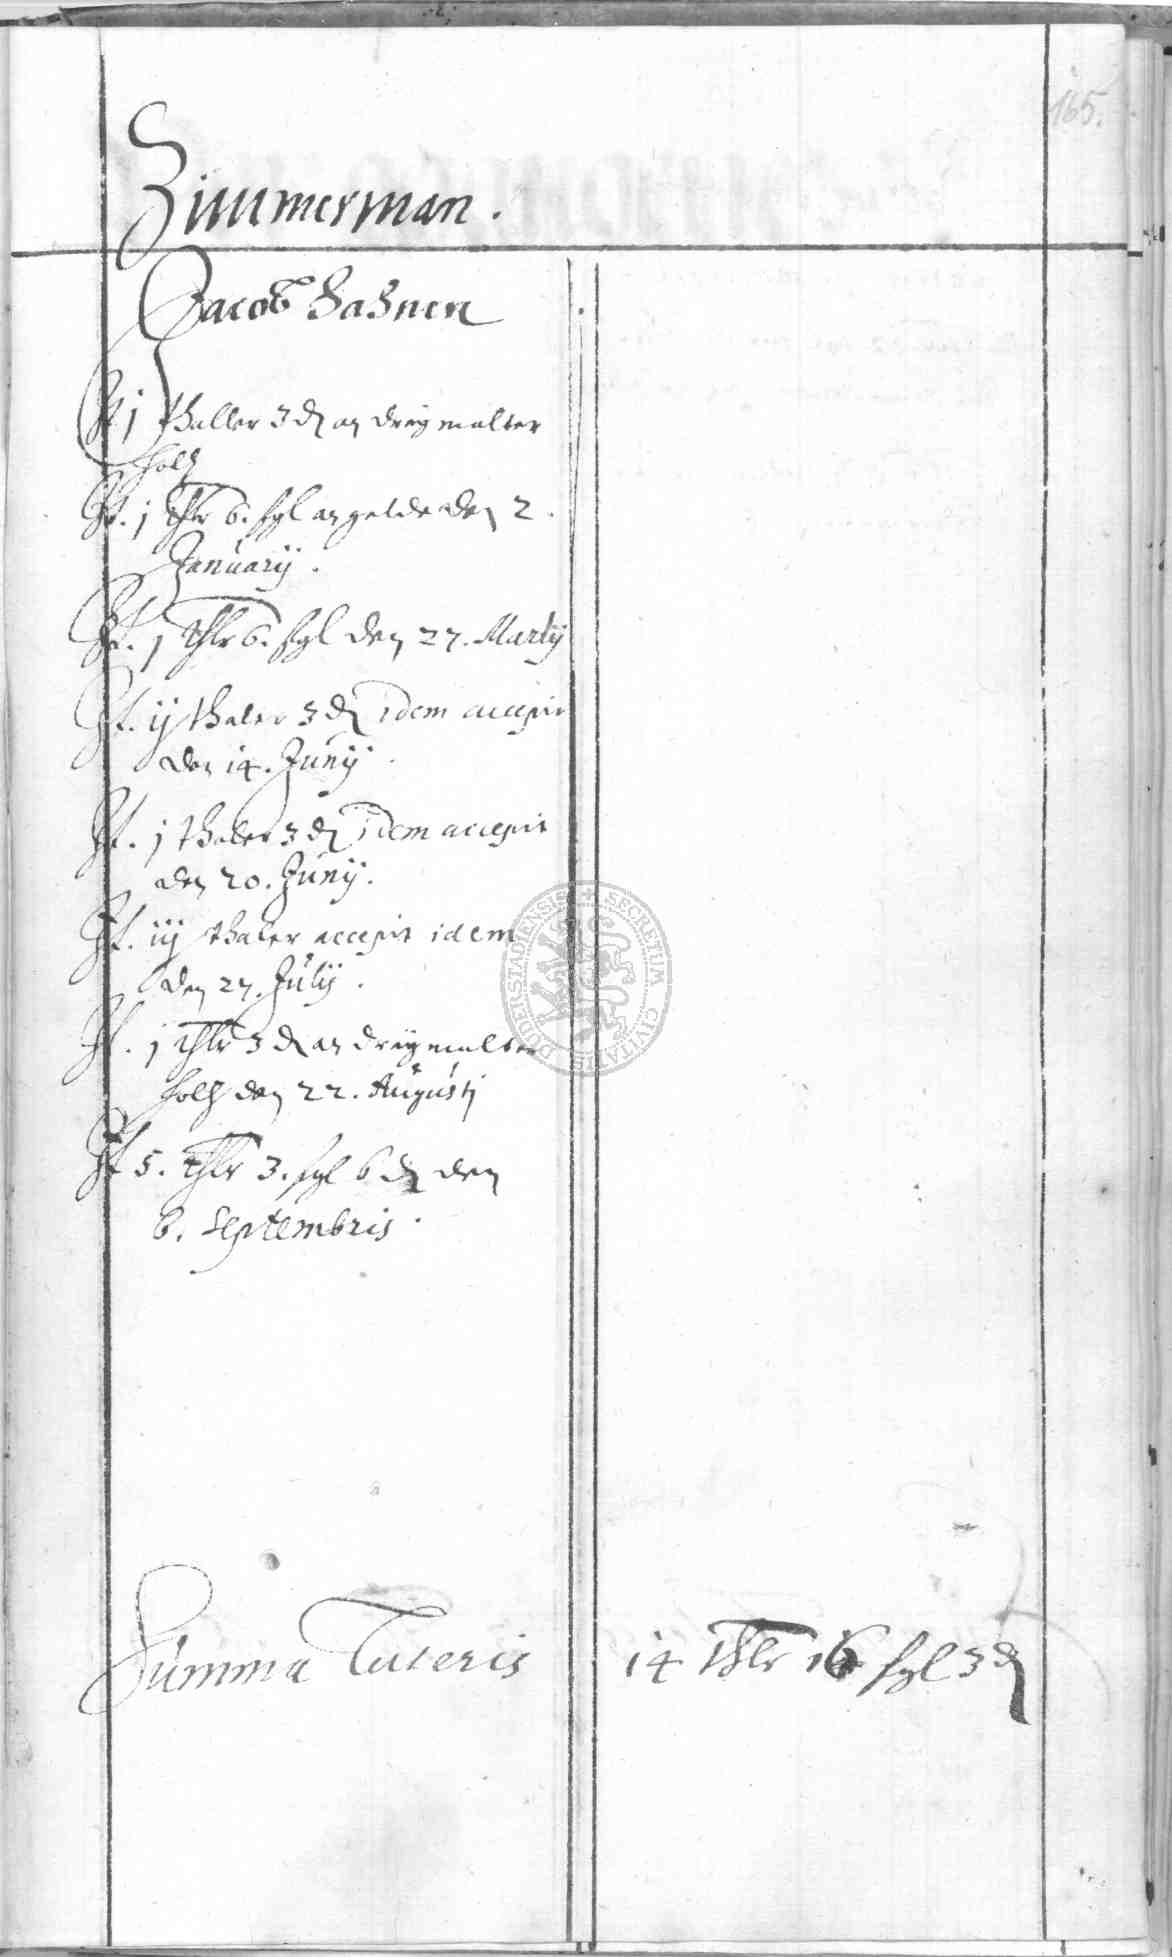 165.
Zimmerman.
Jacob Hahnen
It j thaller 3 ₰ an dreÿ malter
holtz
It. j thlr 6. sgl an gelde den 2.
Januarÿ.
It. j thlr 6. sgl den 27. Martÿ
It. ij thaler 3 ₰ idem accepit
den 14. Junÿ.
It. j thaler 3 ₰ idem accepit
den 20. Junÿ.
It. iij thaler accepit idem
den 27. Julÿ.
It. j thlr 3 ₰ an dreÿ malter
holtz den 22. Augustj
It 5. thlr 3. sgl 6 ₰ den
6. Septembris.
Summa Lateris 14 thlr 16 sgl 3 ₰
SECRETUM CIVITATIS DUDERSTADIENSIS